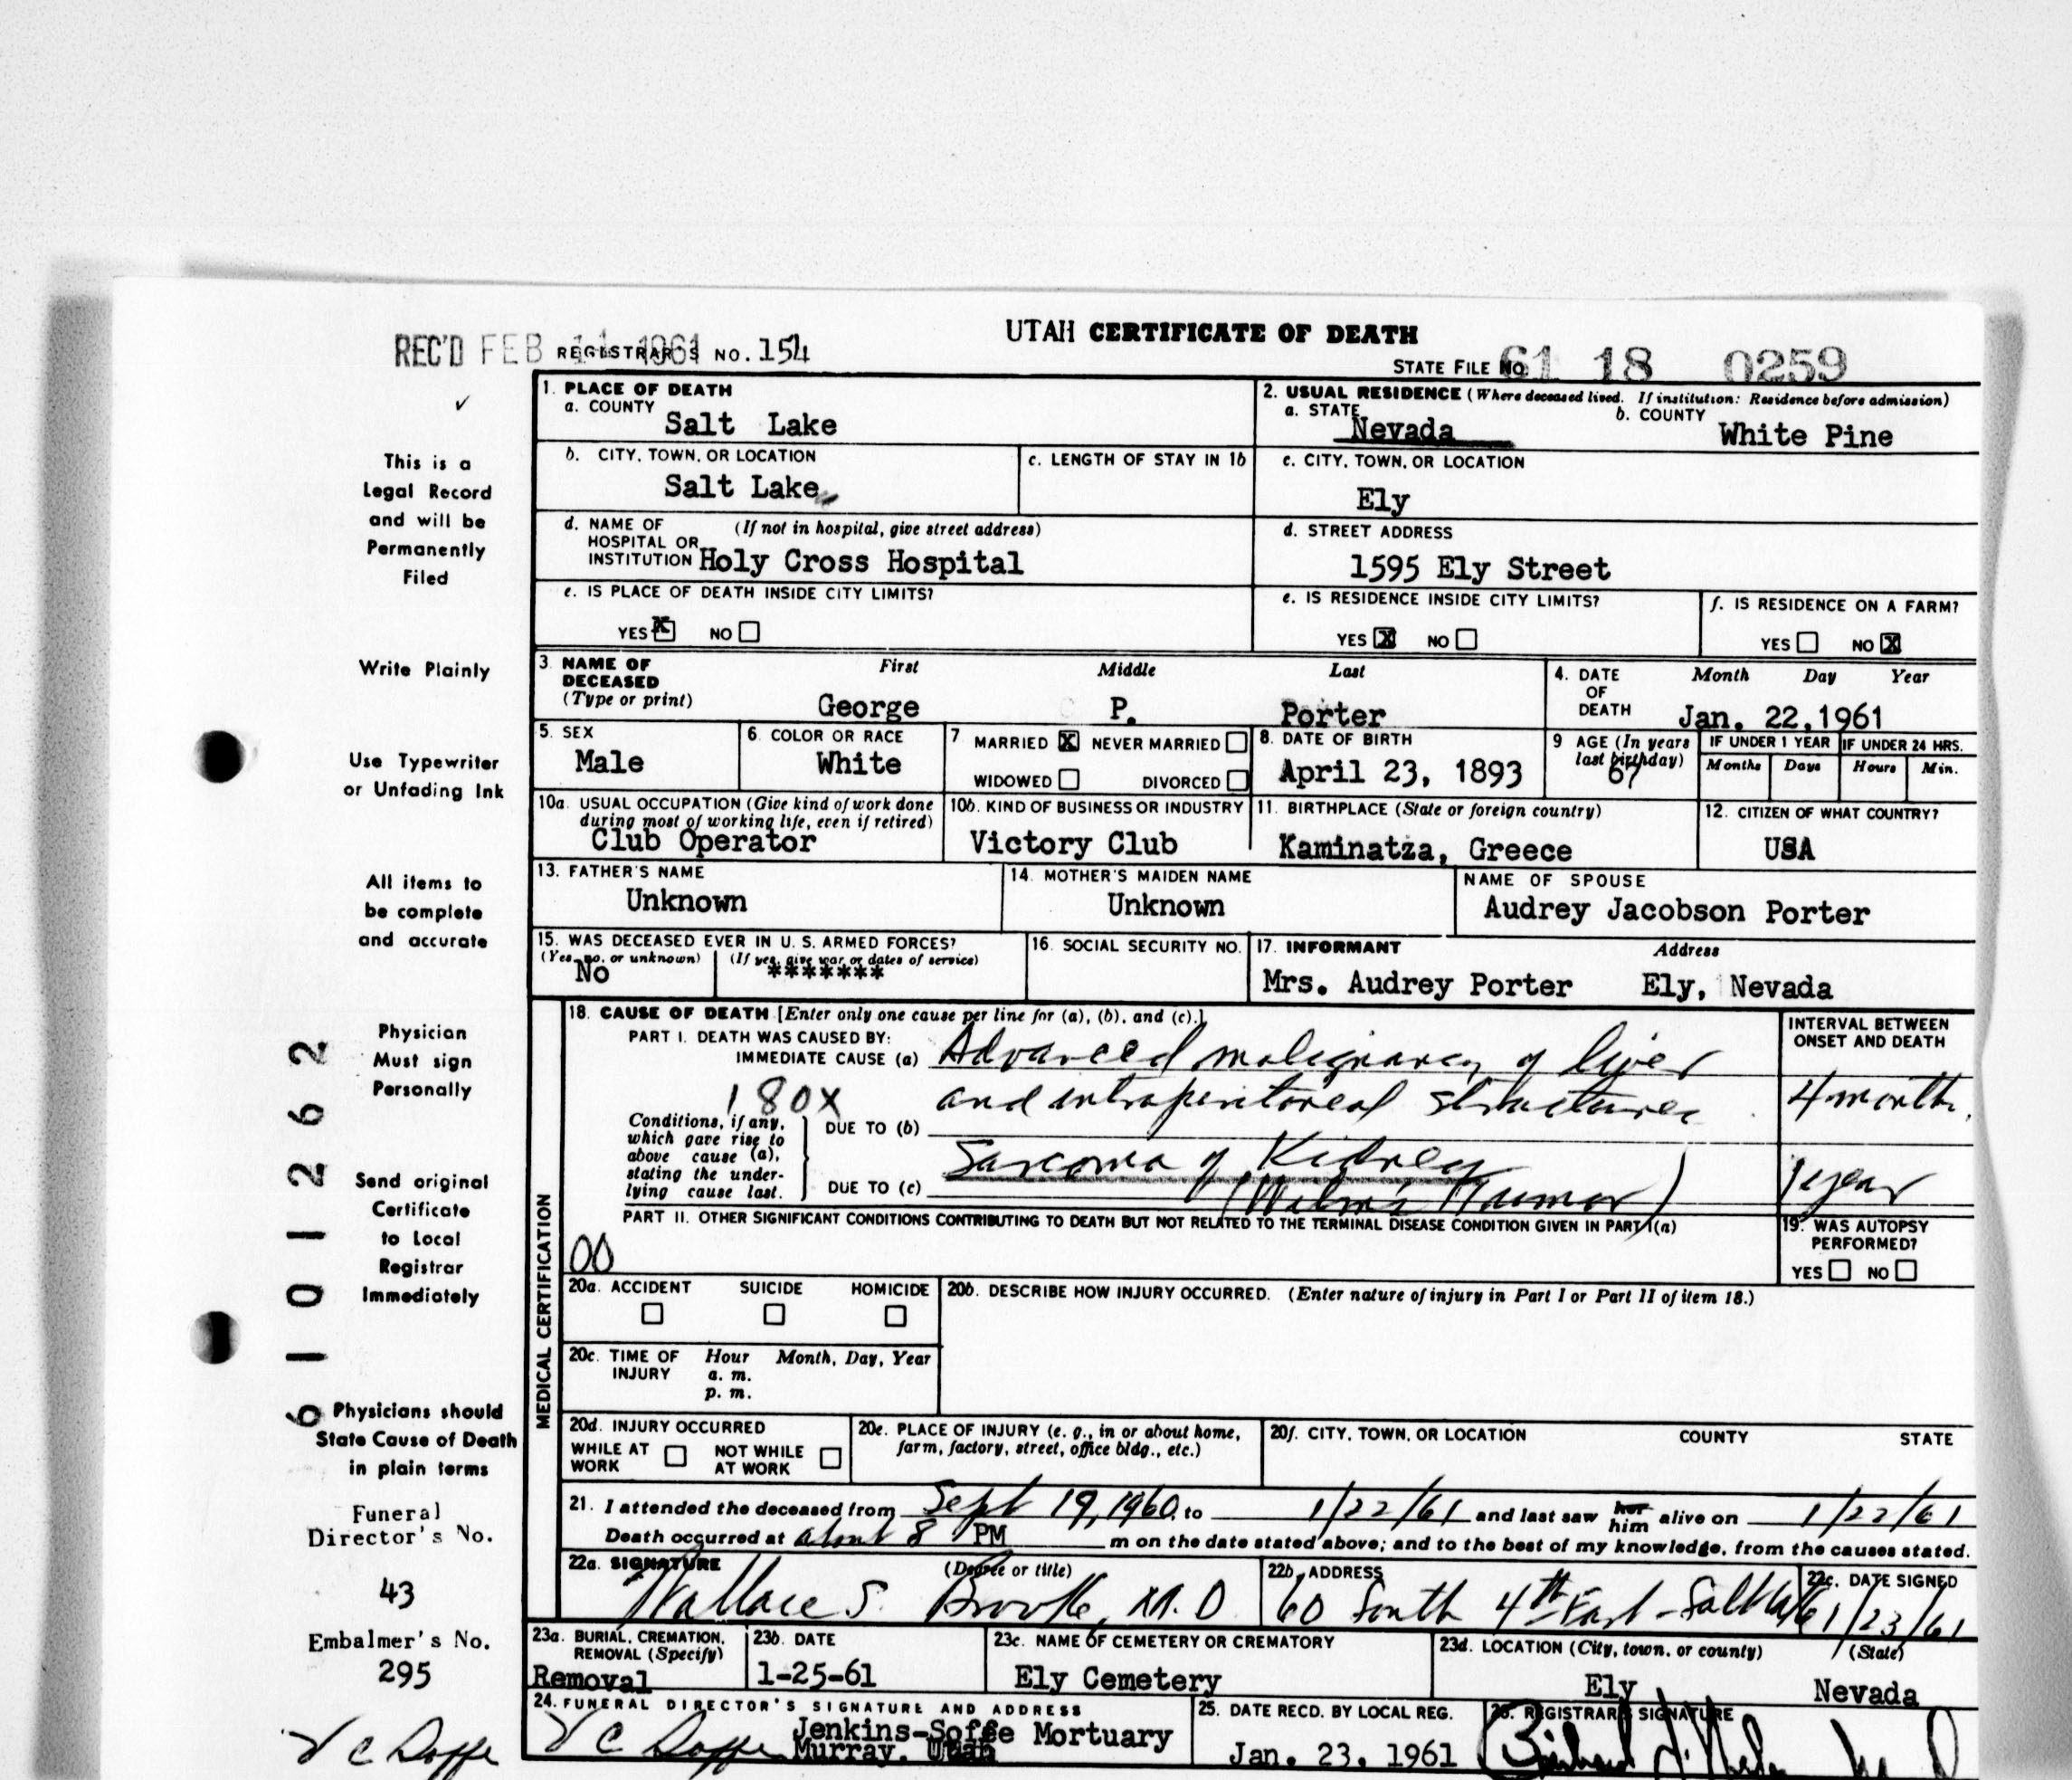 UTAH CERTIFICATE OF DEATH
REC'D FEB 1961 REGISTRAR'S NO. 154
STATE FILE NO. 61 18 0259
1. PLACE OF DEATH
a. COUNTY
Salt Lake
2. USUAL RESIDENCE (Where deceased lived. If institution: Residence before admission)
a. STATE Nevada b. COUNTY White Pine
b. CITY, TOWN, OR LOCATION
Salt Lake
c. LENGTH OF STAY IN 1b
c. CITY, TOWN, OR LOCATION
Ely
d. NAME OF HOSPITAL OR INSTITUTION (If not in hospital, give street address)
Holy Cross Hospital
d. STREET ADDRESS
1595 Ely Street
e. IS PLACE OF DEATH INSIDE CITY LIMITS?
YES X NO
e. IS RESIDENCE INSIDE CITY LIMITS?
YES X NO
f. IS RESIDENCE ON A FARM?
YES NO X
3. NAME OF DECEASED (Type or print)
First Middle Last
George P. Porter
4. DATE OF DEATH Month Day Year
Jan. 22,1961
5. SEX
Male
6. COLOR OR RACE
White
7. MARRIED X NEVER MARRIED
WIDOWED DIVORCED
8. DATE OF BIRTH
April 23, 1893
9 AGE (In years last birthday)
67
IF UNDER 1 YEAR IF UNDER 24 HRS.
Months Days Hours Min.
10a. USUAL OCCUPATION (Give kind of work done during most of working life, even if retired)
Club Operator
10b. KIND OF BUSINESS OR INDUSTRY
Victory Club
11. BIRTHPLACE (State or foreign country)
Kaminatza, Greece
12. CITIZEN OF WHAT COUNTRY?
USA
13. FATHER'S NAME
Unknown
14. MOTHER'S MAIDEN NAME
Unknown
NAME OF SPOUSE
Audrey Jacobson Porter
15. WAS DECEASED EVER IN U. S. ARMED FORCES?
(Yes, no, or unknown) (If yes, give war or dates of service)
No *******
16. SOCIAL SECURITY NO.
17. INFORMANT Address
Mrs. Audrey Porter Ely, Nevada
MEDICAL CERTIFICATION
18. CAUSE OF DEATH [Enter only one cause per line for (a), (b), and (c).]
PART I. DEATH WAS CAUSED BY:
IMMEDIATE CAUSE (a) Advanced malignancy of liver
180X and intraperitoneal structures
Conditions, if any, which gave rise to above cause (a), stating the underlying cause last.
DUE TO (b)
Sarcoma of Kidney
DUE TO (c) (Wilms Tumor)
INTERVAL BETWEEN ONSET AND DEATH
4 month.
1 year
PART II. OTHER SIGNIFICANT CONDITIONS CONTRIBUTING TO DEATH BUT NOT RELATED TO THE TERMINAL DISEASE CONDITION GIVEN IN PART I(a)
00
19. WAS AUTOPSY PERFORMED?
YES NO
20a. ACCIDENT SUICIDE HOMICIDE
20b. DESCRIBE HOW INJURY OCCURRED. (Enter nature of injury in Part I or Part II of item 18.)
20c. TIME OF INJURY Hour Month, Day, Year
a. m.
p. m.
20d. INJURY OCCURRED
WHILE AT WORK NOT WHILE AT WORK
20e. PLACE OF INJURY (e. g., in or about home, farm, factory, street, office bldg., etc.)
20f. CITY, TOWN, OR LOCATION COUNTY STATE
21. I attended the deceased from Sept 19, 1960 to 1/22/61 and last saw her him alive on 1/22/61
Death occurred at about 8 PM m on the date stated above; and to the best of my knowledge, from the causes stated.
22a. SIGNATURE (Degree or title)
Wallace S. Brooke, M.D
22b. ADDRESS
60 South 4th East - Salt Lake
22c. DATE SIGNED
1/23/61
23a. BURIAL, CREMATION, REMOVAL (Specify)
Removal
23b. DATE
1-25-61
23c. NAME OF CEMETERY OR CREMATORY
Ely Cemetery
23d. LOCATION (City, town, or county) (State)
Ely Nevada
24. FUNERAL DIRECTOR'S SIGNATURE AND ADDRESS
Jenkins-Soffe Mortuary
Murray, Utah
25. DATE RECD. BY LOCAL REG.
Jan. 23, 1961
26. REGISTRAR'S SIGNATURE
This is a
Legal Record
and will be
Permanently
Filed
Write Plainly
Use Typewriter
or Unfading Ink
All items to
be complete
and accurate
Physician
Must sign
Personally
Send original
Certificate
to Local
Registrar
Immediately
Physicians should
State Cause of Death
in plain terms
Funeral
Director's No.
43
Embalmer's No.
295
6101262